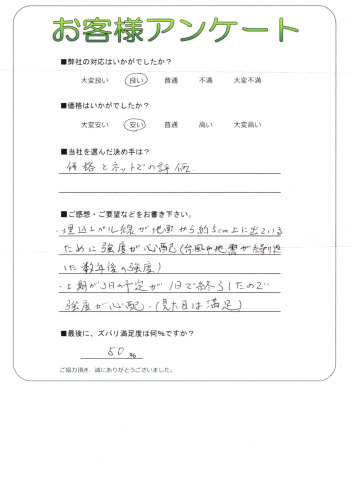 お客様アンケート
■弊社の対応はいかがでしたか？
大変良い 良い 普通 不満 大変不満
■価格はいかがでしたか？
大変安い 安い 普通 高い 大変高い
■当社を選んだ決め手は？
価格とネットでの評価.
■ご感想・ご要望などをお書き下さい。
・埋込レベル線が地面から約5cm上に出ている
ために強度が心配(台風や地震が繰り返
した数年後の強度)
・工期が3日の予定が1日で終了したので
強度が心配.(見た目は満足)
■最後に、ズバリ満足度は何%ですか？
50 %
ご協力頂き、誠にありがとうございました。